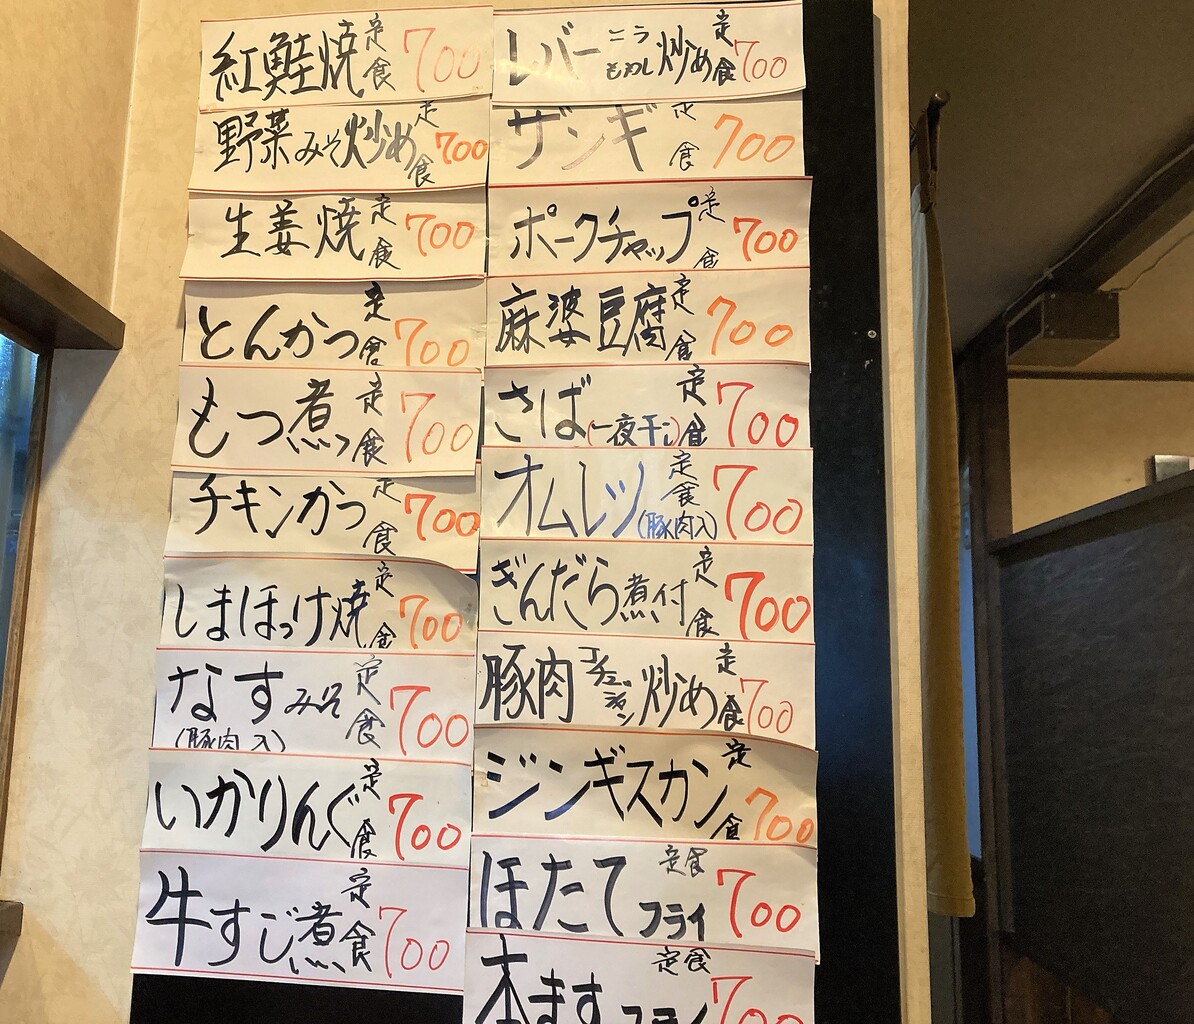 紅鮭焼定食 700
野菜みそ炒め定食 700
生姜焼定食 700
とんかつ定食 700
もつ煮定食 700
チキンかつ定食 700
しまほっけ焼定食 700
なすみそ定食 700
(豚肉入)
いかりんぐ定食 700
牛すじ煮定食 700
レバーニラもやし炒め定食 700
ザンギ定食 700
ポークチャップ定食 700
麻婆豆腐定食 700
さば(一夜干し)定食 700
オムレツ定食 700
(豚肉入)
ぎんだら煮付定食 700
豚肉コチュジャン炒め定食 700
ジンギスカン定食 700
ほたてフライ定食 700
本ますフライ定食 700